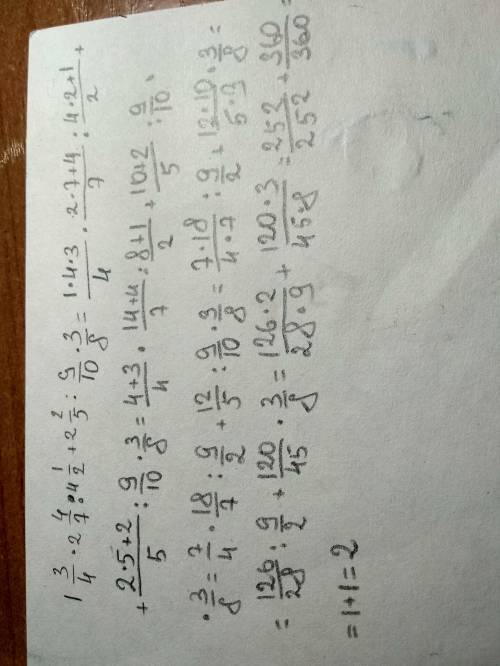 1 3/4 · 2 4/7 : 4 1/2 + 2 2/5 : 9/10 · 3/8 = (1·4·3)/4 · (2·7+4)/7 : (4·2+1)/2 +
+ (2·5+2)/5 : 9/10 · 3/8 = (4+3)/4 · (14+4)/7 : (8+1)/2 + (10+2)/5 : 9/10 ·
· 3/8 = 7/4 · 18/7 : 9/2 + 12/5 : 9/10 · 3/8 = (7·18)/(4·7) : 9/2 + (12·10)/(5·9) · 3/8 =
= 126/28 : 9/2 + 120/45 · 3/8 = (126·2)/(28·9) + (120·3)/(45·8) = 252/252 + 360/360 =
= 1+1=2